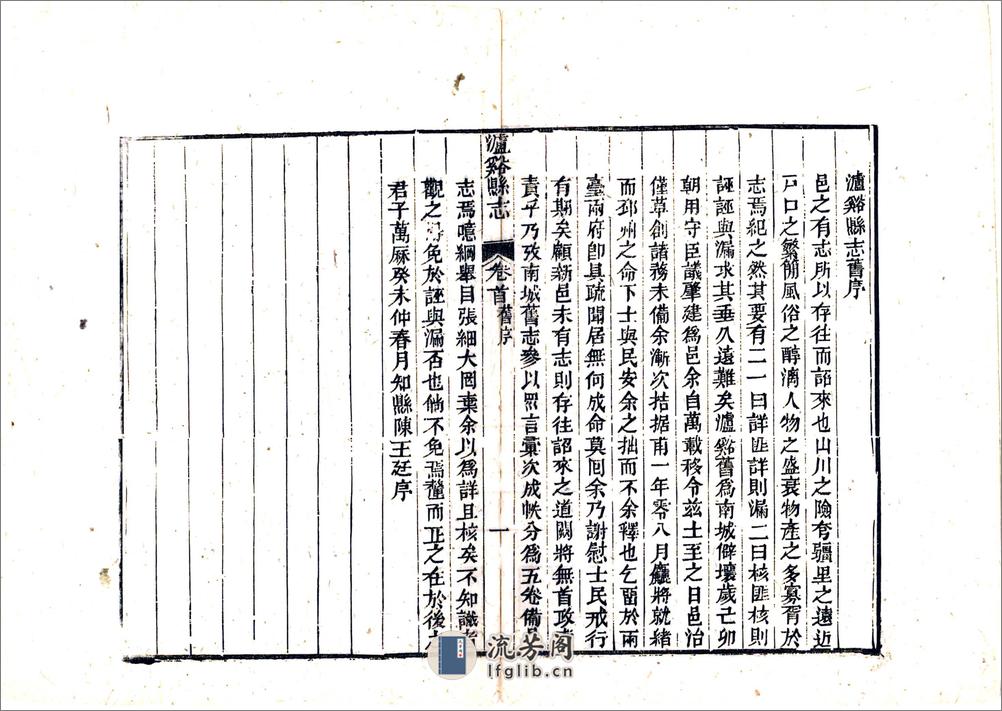 瀘谿縣志舊序
邑之有志所以存往而詔來也山川之險夷疆里之遠近
戸口之繁簡風俗之醇漓人物之盛衰物產之多寡胥於
志焉紀之然其要有二一曰詳匪詳則漏二曰核匪核則
誣誣與漏求其垂久遠難矣瀘谿舊爲南城僻壤歲己卯
朝用守臣議肇建爲邑余自萬載移令兹土至之日邑治
僅草創諸務未備余漸次拮据甫一年零八月廳將就緒
而邳州之命下士與民安余之拙而不余釋也乞畱於兩
臺兩府卽具疏聞居無何成命莫囘余乃謝慰士民戒行
有期矣顧新邑未有志則存往詔來之道闕將無首政者
責乎乃攷南城舊志參以眾言彙次成帙分爲五卷備
瀘谿縣志
卷首
舊序
一
志焉噫綱舉目張細大罔棄余以爲詳且核矣不知識者
觀之得免於誣與漏否也倘不免焉釐而正之在於後之
君子萬厤癸未仲春月知縣陳王廷序
流芳阁
lfglib.cn